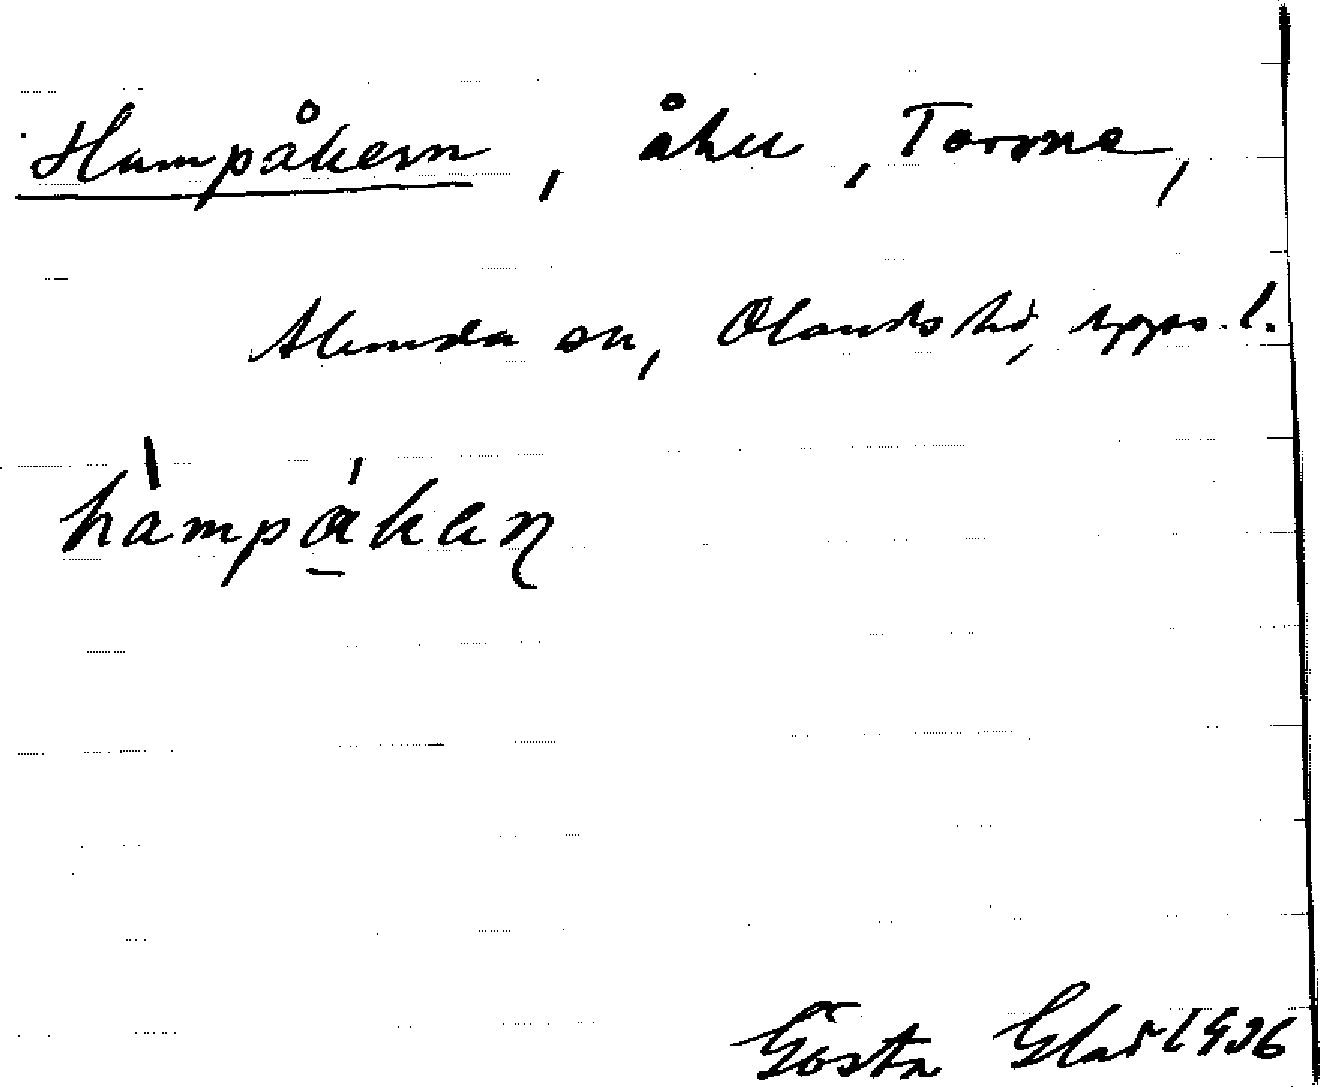 Hampåkern, åker, Torsma,
Alunda sn, Olands hd, Upps. l.
hàmpákaɳ
Gösta Glad 1936